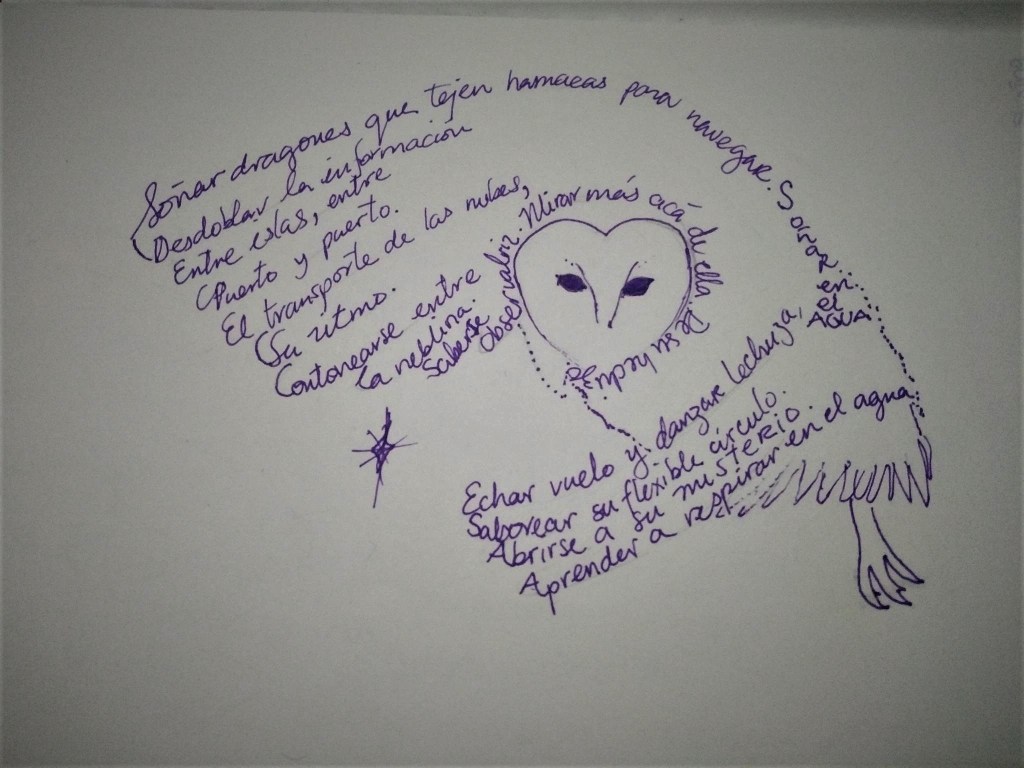 Soñar dragones que tejen hamacas para navegar. Soñar en el AGUA
Desdoblar la información
Entre islas, entre
Puerto y puerto.
El transporte de las nubes,
Su ritmo.
Contonearse entre
la neblina.
Saberse
observatriz. Mirar más acá de ella. De su hechura
Echar vuelo y danzar lechuza,
Saborear su flexible círculo.
Abrirse a su misterio.
Aprender a respirar en el agua